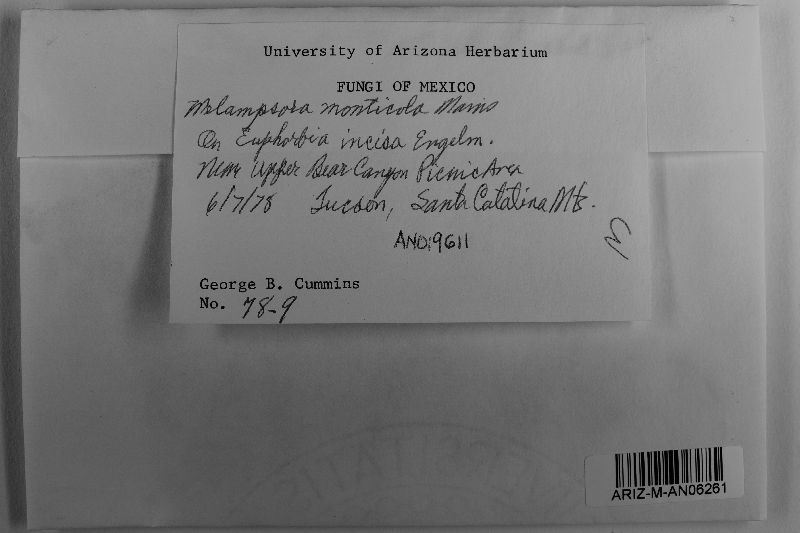 University of Arizona Herbarium
FUNGI OF MEXICO
Melampsora monticola Mains
On Euphorbia incisa Engelm.
Near Upper Bear Canyon Picnic Area
6/7/78 Tucson, Santa Catalina Mts.
AN019611
George B. Cummins
No. 78-9
ARIZ-M-AN06261